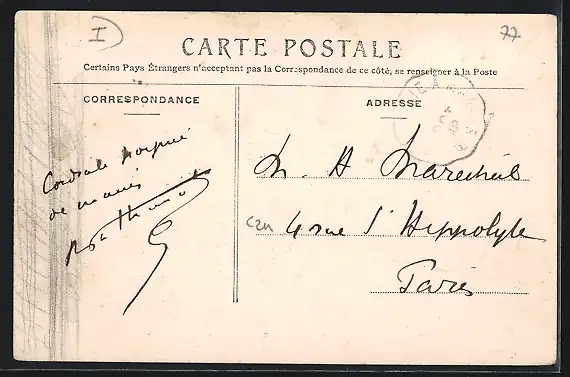 I
77
CARTE POSTALE
Certains Pays Étrangers n'acceptant pas la Correspondance de ce côté, se renseigner à la Poste
CORRESPONDANCE
ADRESSE
Cordiale
de mains
M. H Maréchal
czn 4 rue St Hippolyte
Paris